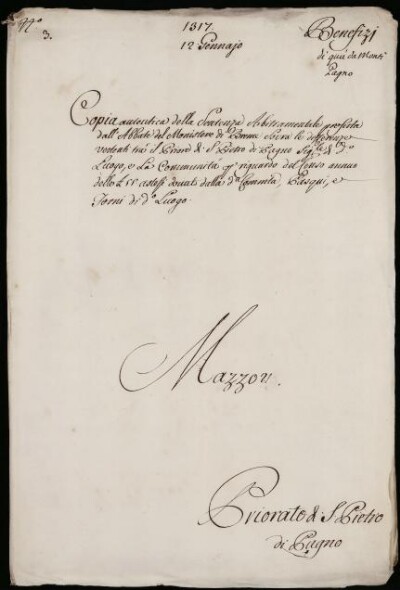 N.º 3.
1317.
12 Gennajo
Benefizj
di qua da Monti
Pagno
Copia autentica della Sentenza Arbitramentale proferta
dall'Abbate del Monistero di Breme circa le differenze
vertenti tra il Prior di S. Pietro di Pagno Sig.re di d.º
Luogo, e la Communità p riguardo del Censo annuo
delle L astesi dovuti dalla d.a Comm.tà, Pasqui, e
Forni di d.º Luogo.
Mazzo
Priorato di S. Pietro
di Pagno